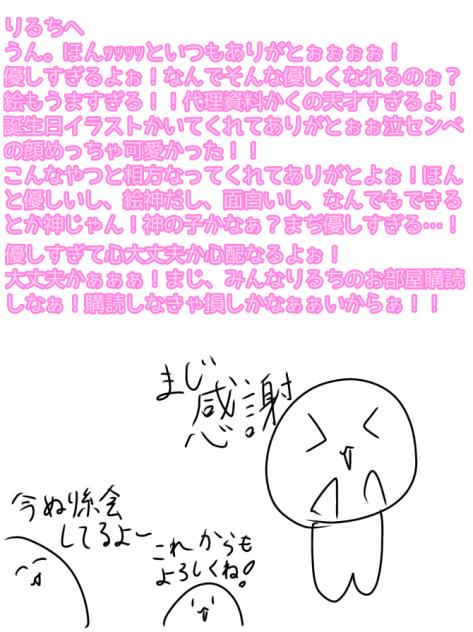 りるちへ
うん。ほんｯｯｯｯといつもありがとぉぉぉぉ！
優しすぎるよぉ！なんでそんな優しくなれるのぉ？
絵もうますぎる！！代理資料かくの天才すぎるよ！
誕生日イラストかいてくれてありがとぉぉ泣センベ
の顔めっちゃ可愛かった！！
こんなやつと相方なってくれてありがとよぉ！ほん
と優しいし、絵神だし、面白いし、なんでもできる
とか神じゃん！神の子かなぁ？まぢ優しすぎる…！
優しすぎて心大丈夫か心配なるよぉ！
大丈夫かぁぁぁ！まじ、みんなりるちのお部屋購読
しなぁ！購読しなきゃ損しかなぁぁいからぁ！！
まじ
感謝
心
今ぬり絵会
してるよー
これからも
よろしくね！